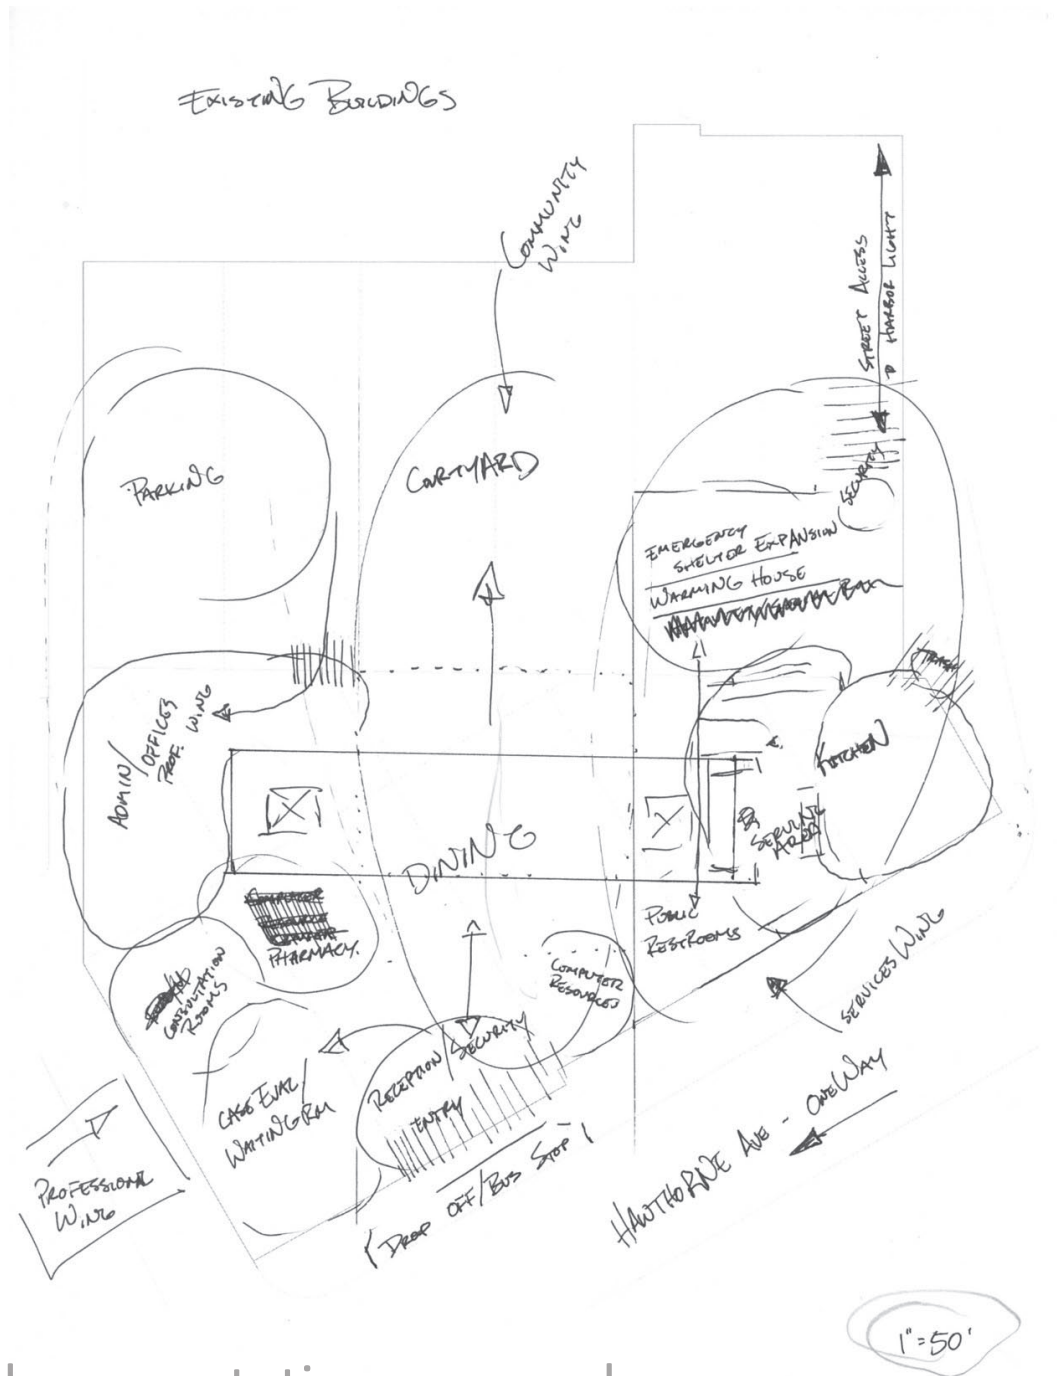 EXISTING BUILDINGS
COMMUNITY
WING
STREET ACCESS
TO HARBOR LIGHT
PARKING
COURTYARD
SECURITY
EMERGENCY
SHELTER EXPANSION
WARMING HOUSE
TRASH
ADMIN/
OFFICES
PROF. WING
KITCHEN
SERVING
AREA
DINING
PHARMACY.
PUBLIC
RESTROOMS
CONSULTATION
ROOMS
COMPUTER
RESOURCES
SERVICES WING
RECEPTION/SECURITY
ENTRY
CASE EVAL/
WAITING RM
DROP OFF/BUS STOP
HAWTHORNE AVE - ONE WAY
PROFESSIONAL
WING
1"=50'